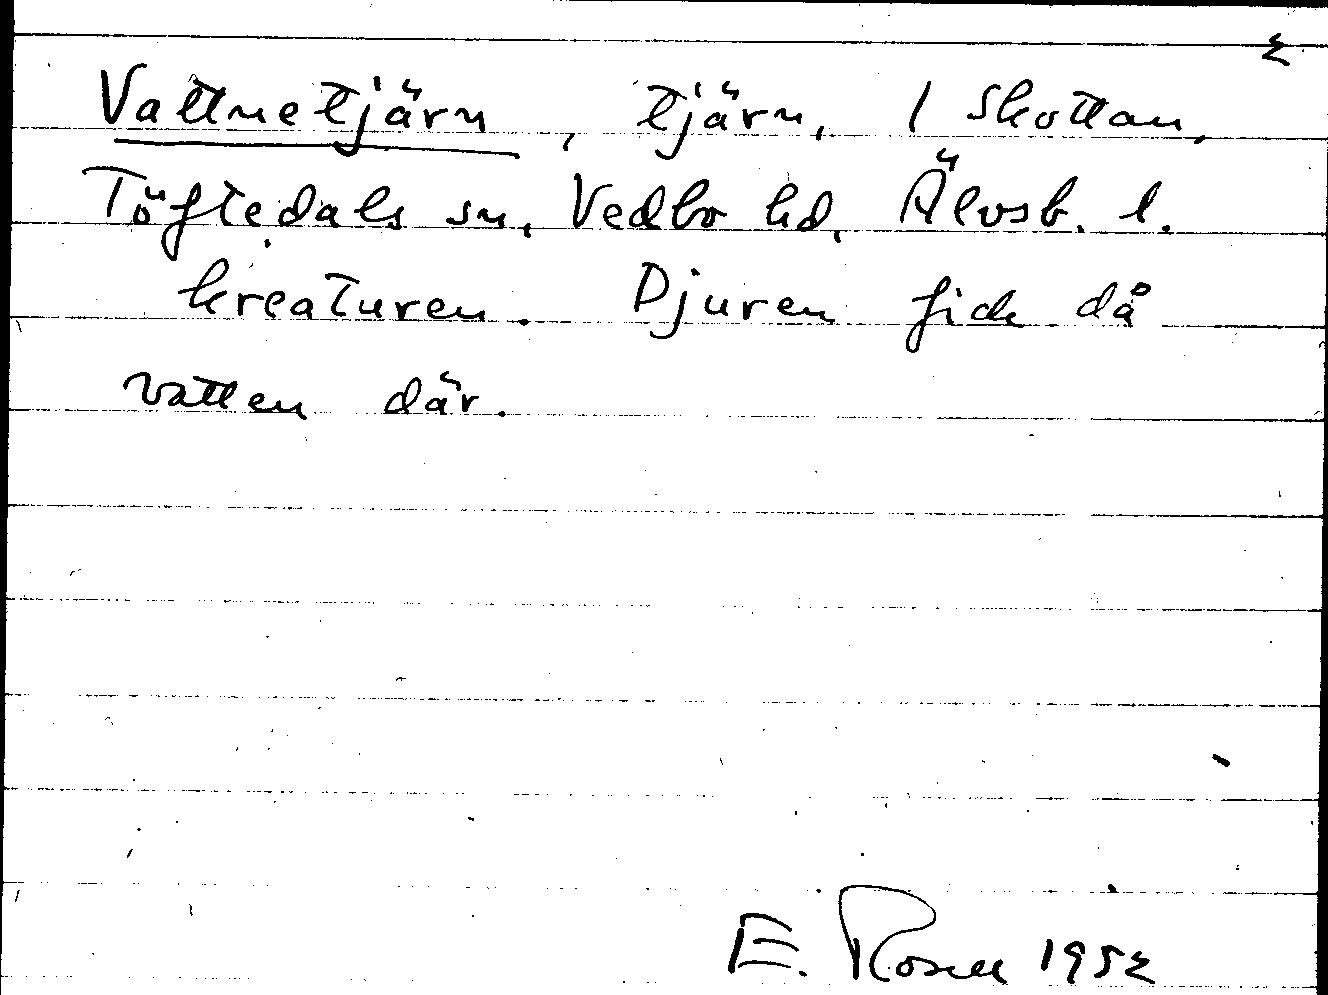 2
Vattnetjärn, tjärn, 1 Skottan,
Töftedals sn, Vedbo hd, Älvsb. l.
kreaturen. Djuren fick då
vatten där.
E. Rosell 1952